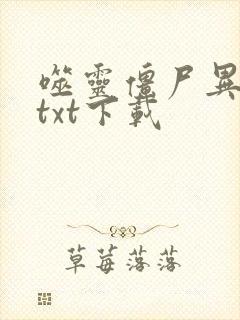 噬靈僵尸異
txt下載
草莓落落